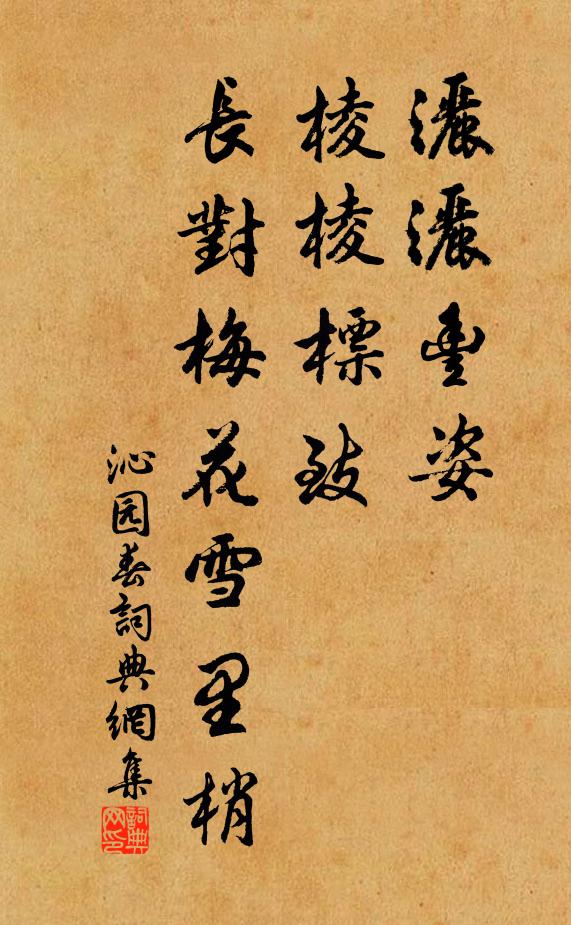 灑灑豊姿
棱棱標致
長對梅花雪里梢
沁园春詞典網集
詞典网印